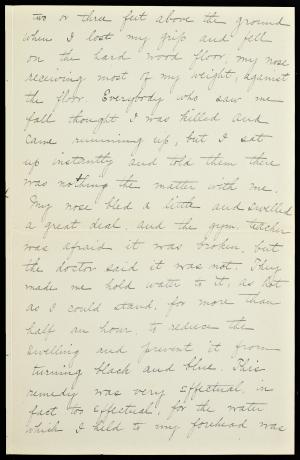 two or three feet above the ground
when I lost my grip and fell
on the hard wood floor, my nose
receiving most of my weight, against
the floor. Everybody who saw me
fall thought I was killed and
came running up, but I sat
up instantly and told them there
was nothing the matter with me.
My nose bled a little and swelled
a great deal, and the gym. teacher
was afraid it was broken, but
the doctor said it was not. They
made me hold water to it, as hot
as I could stand, for more than
half an hour, to reduce the
swelling and prevent it from
turning black and blue. This
remedy was very effectual, in
fact too effectual, for the water
which I held to my forehead was